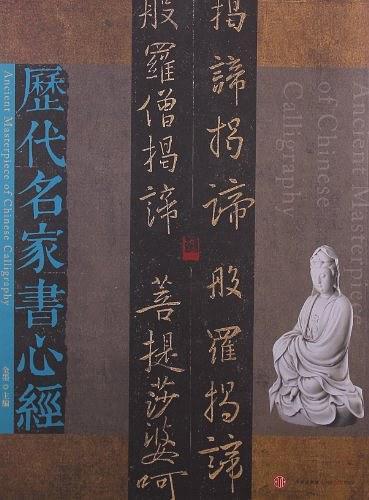 歷代名家書心經
Ancient Masterpiece of Chinese Calligraphy
金墨 主編
揭諦揭諦 般羅揭諦
般羅僧揭諦 菩提莎婆呵
Ancient Masterpiece
of Chinese
Calligraphy